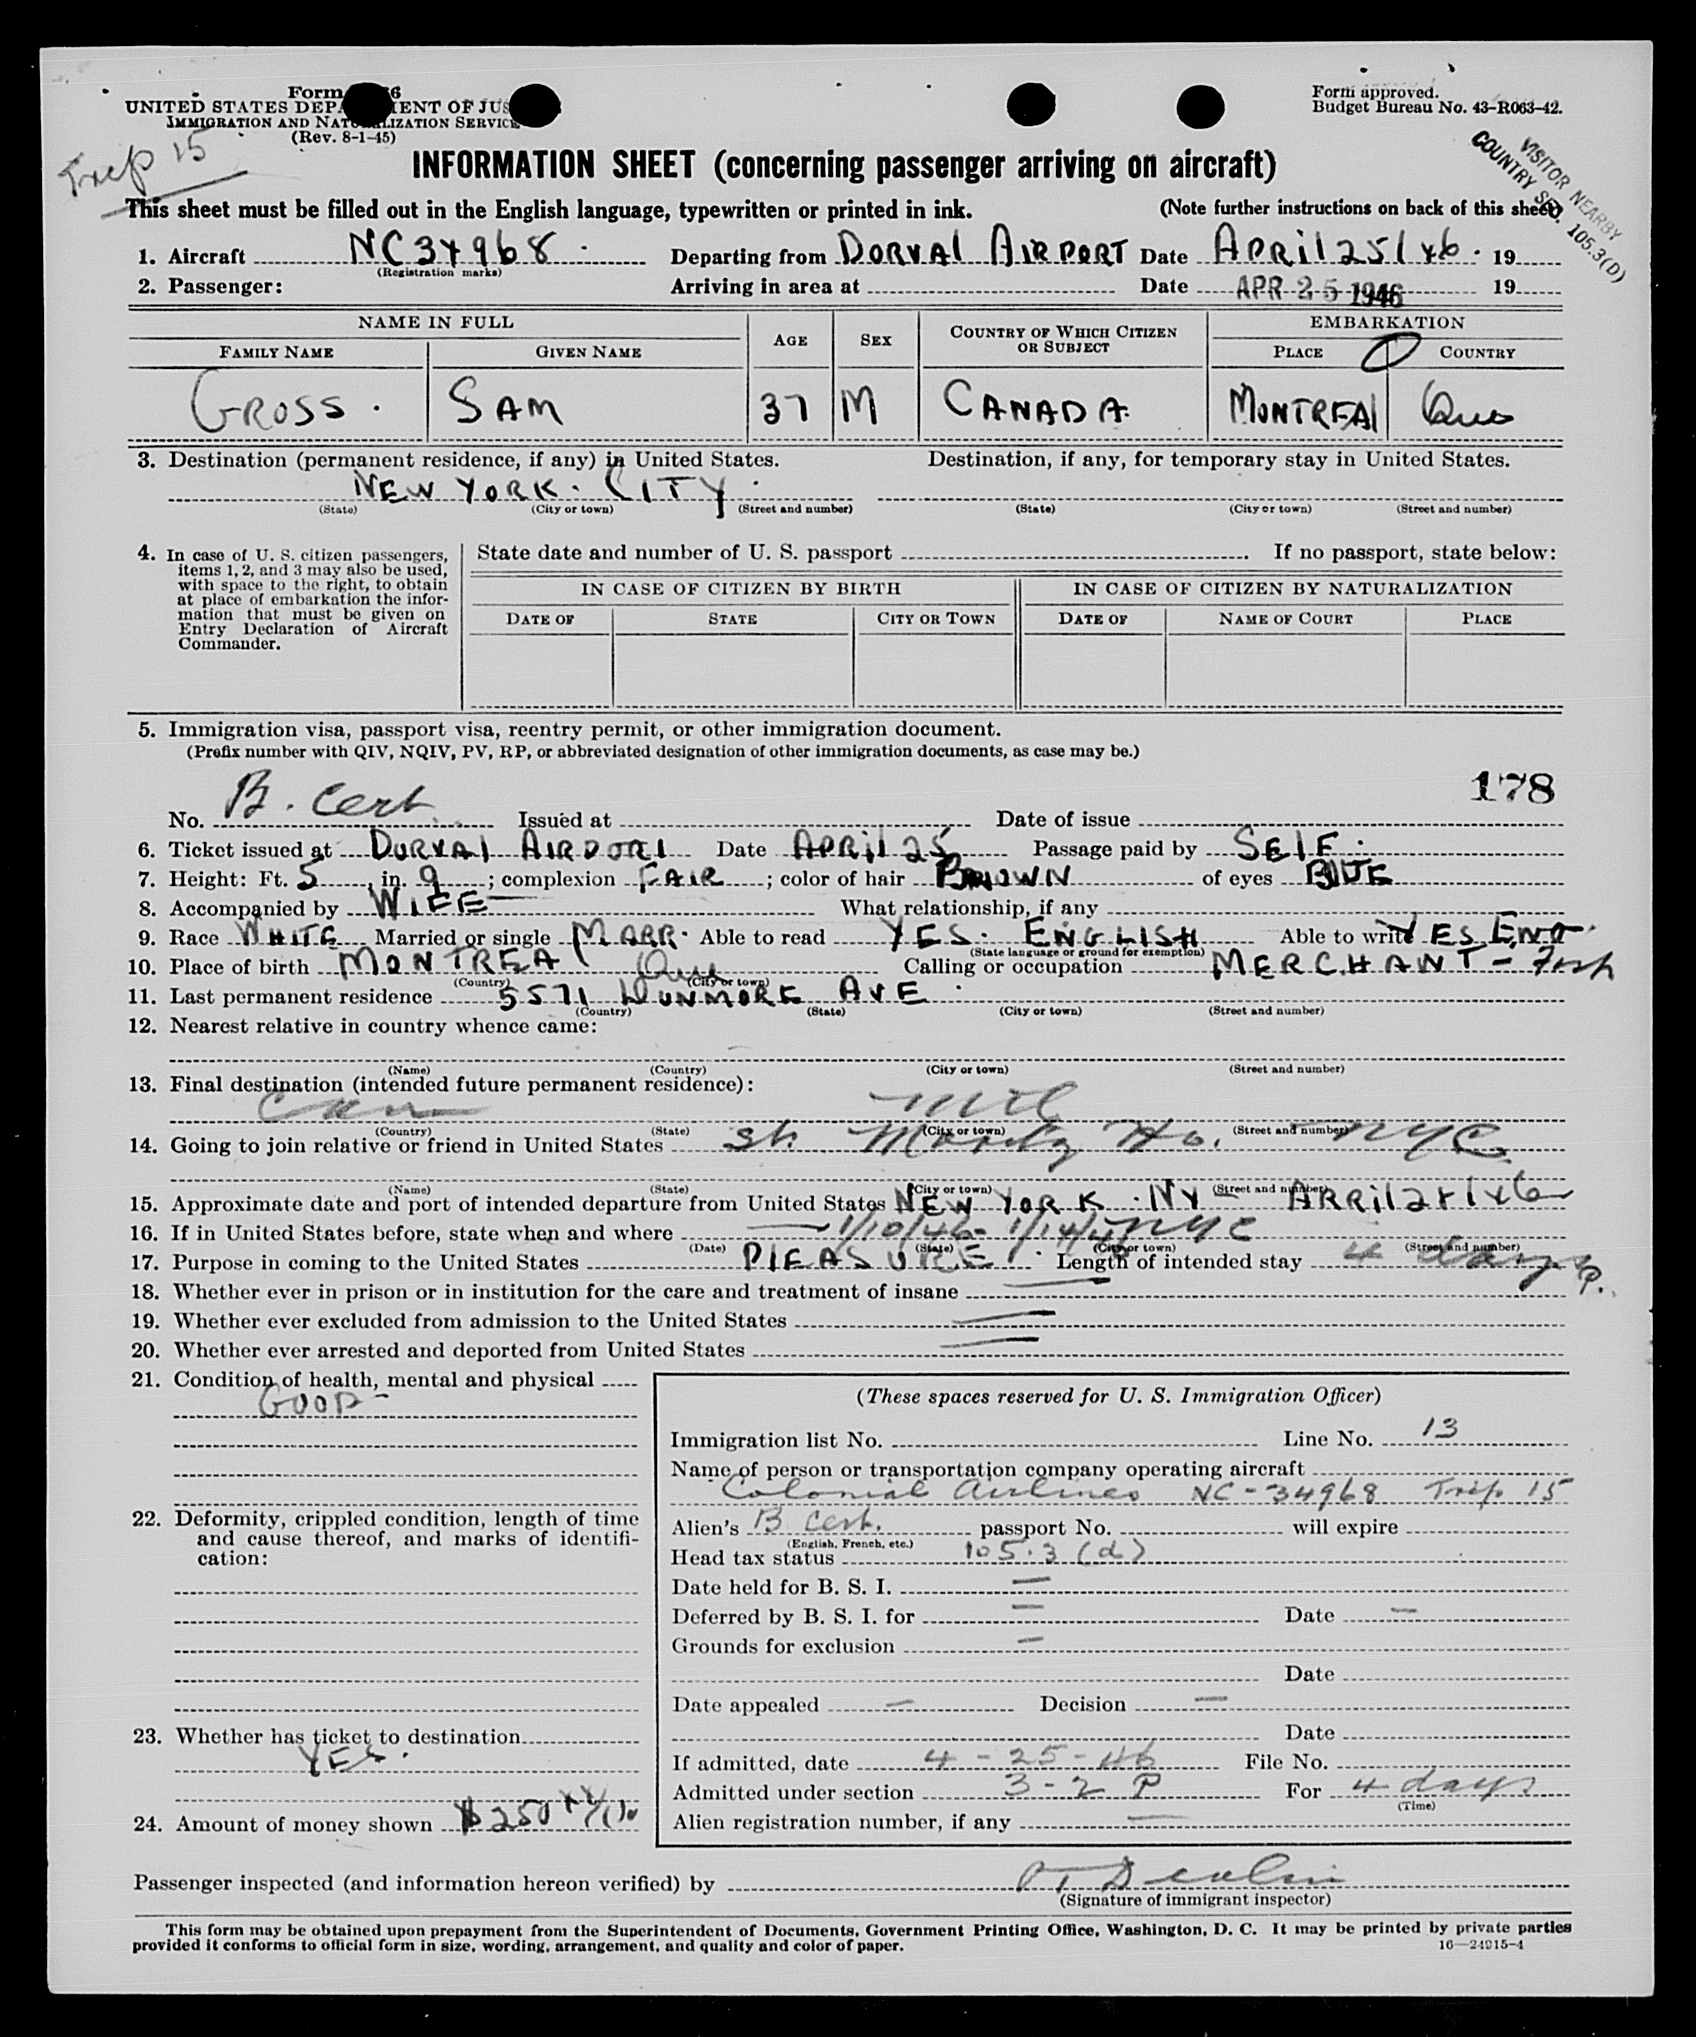 Form 66
UNITED STATES DEPA MENT OF JUS
IMMIGRATION AND NATURALIZATION SERVICE
(Rev. 8-1-45)
Form approved.
Budget Bureau No. 43-R063-42.
Trip 15
VISITOR NEARBY
COUNTRY SEC. 105.3(D)
INFORMATION SHEET (concerning passenger arriving on aircraft)
This sheet must be filled out in the English language, typewritten or printed in ink. (Note further instructions on back of this sheet)
1. Aircraft NC34968 Departing from DORVAL AIRPORT Date APRil 25/46. 19
(Registration marks)
2. Passenger: Arriving in area at Date APR 25 1946 19
NAME IN FULL AGE SEX COUNTRY OF WHICH CITIZEN OR SUBJECT EMBARKATION
FAMILY NAME GIVEN NAME PLACE COUNTRY
GROSS. SAM 37 M CANADA. MONTREAl Que
3. Destination (permanent residence, if any) in United States. Destination, if any, for temporary stay in United States.
NEW YORK. CITY.
(State) (City or town) (Street and number) (State) (City or town) (Street and number)
4. In case of U. S. citizen passengers, items 1, 2, and 3 may also be used, with space to the right, to obtain at place of embarkation the information that must be given on Entry Declaration of Aircraft Commander.
State date and number of U. S. passport If no passport, state below:
IN CASE OF CITIZEN BY BIRTH IN CASE OF CITIZEN BY NATURALIZATION
DATE OF STATE CITY OR TOWN DATE OF NAME OF COURT PLACE
5. Immigration visa, passport visa, reentry permit, or other immigration document.
(Prefix number with QIV, NQIV, PV, RP, or abbreviated designation of other immigration documents, as case may be.)
178
No. B. Cert. Issued at Date of issue
6. Ticket issued at DORVAl AIRPORT Date APRil 25 Passage paid by SELF.
7. Height: Ft. 5, in. 9; complexion FAIR; color of hair BROWN of eyes BlUE
8. Accompanied by WIFE What relationship, if any
9. Race WHITE Married or single MARR. Able to read YES. ENGLISH Able to write YES ENG.
(State language or ground for exemption)
10. Place of birth MONTREAl Que Calling or occupation MERCHANT -
(Country) (City or town)
11. Last permanent residence 5571 DUNMORE AVE.
(Country) (State) (City or town) (Street and number)
12. Nearest relative in country whence came:
(Name) (Country) (City or town) (Street and number)
13. Final destination (intended future permanent residence):
Can Mtl
(Country) (State) (City or town) (Street and number)
14. Going to join relative or friend in United States St. Moritz Ho. NYC
(Name) (State) (City or town) (Street and number)
15. Approximate date and port of intended departure from United States NEW YORK. NY APRil 28/46
16. If in United States before, state when and where 1/10/46 - 1/14/46 NYC
(Date) (State) (City or town) (Street and number)
17. Purpose in coming to the United States PlEASURE. Length of intended stay 4 days P.
18. Whether ever in prison or in institution for the care and treatment of insane —
19. Whether ever excluded from admission to the United States —
20. Whether ever arrested and deported from United States —
21. Condition of health, mental and physical
GOOD -
22. Deformity, crippled condition, length of time and cause thereof, and marks of identification:
23. Whether has ticket to destination
YES.
24. Amount of money shown $250
(These spaces reserved for U. S. Immigration Officer)
Immigration list No. Line No. 13
Name of person or transportation company operating aircraft
Colonial Airlines NC-34968 Trip 15
Alien's B Cert. passport No. will expire
(English, French, etc.)
Head tax status 105.3 (d)
Date held for B. S. I. —
Deferred by B. S. I. for — Date —
Grounds for exclusion —
Date
Date appealed — Decision —
Date
If admitted, date 4-25-46 File No.
Admitted under section 3-2 P For 4 days
(Time)
Alien registration number, if any —
Passenger inspected (and information hereon verified) by
(Signature of immigrant inspector)
This form may be obtained upon prepayment from the Superintendent of Documents, Government Printing Office, Washington, D. C. It may be printed by private parties
provided it conforms to official form in size, wording, arrangement, and quality and color of paper. 16—24915-4